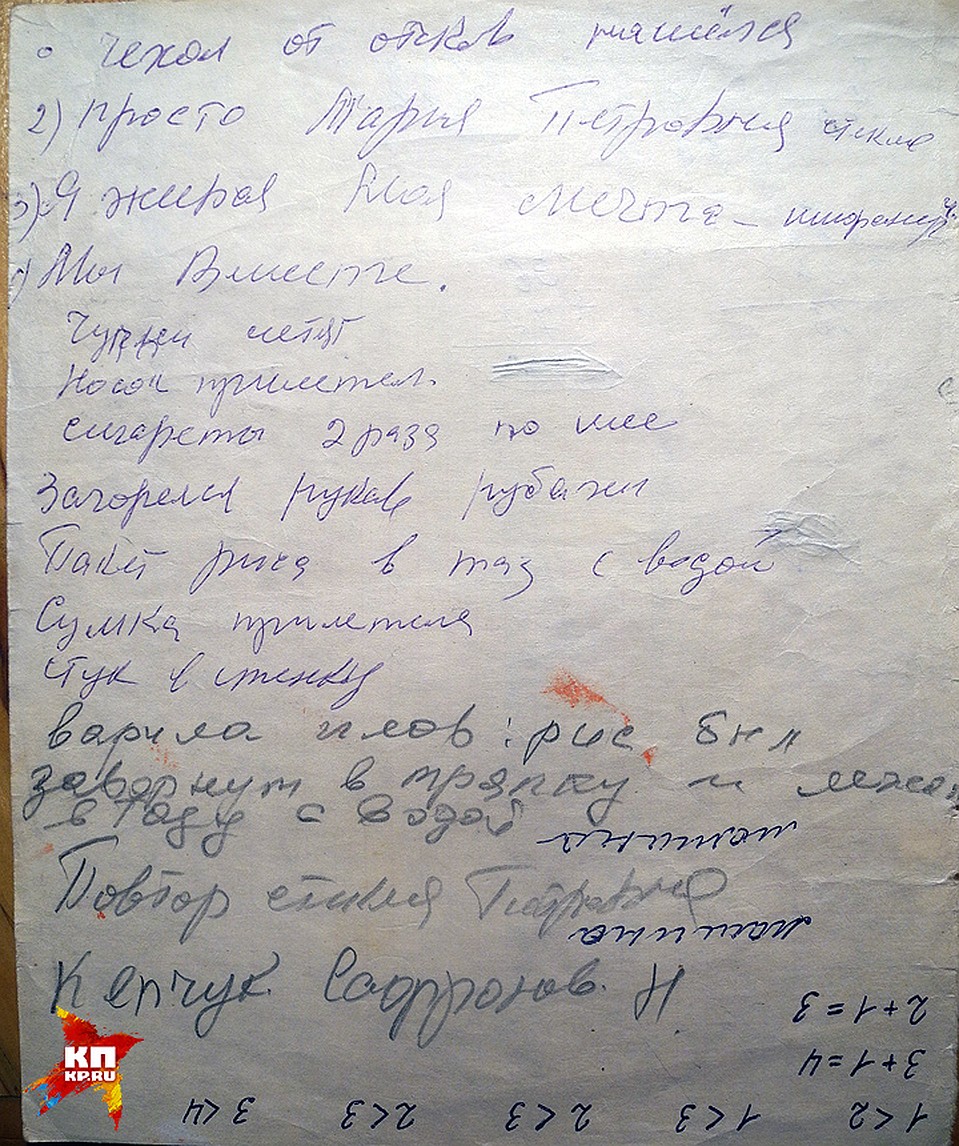 чехол от очков нашёлся
2) просто Мария Петровна
3) Я жирая Моя мечта –
Мы Вместе.
летят
Носок прилетел.
сигареты 2 раза по шее
Загорелся рукав рубахи
Пакет риса в таз с водой
Сумка прилетела
Стук в стенку
варила плов: рис был
завернут в тряпку и
в тазу с водой
машина
Повтор стихия Петровна
машина
Кепчук Сафронов. Н.
2+1=3
3+1=4
1<2 1<3 2<3 2<3 3<4
КП
KP.RU